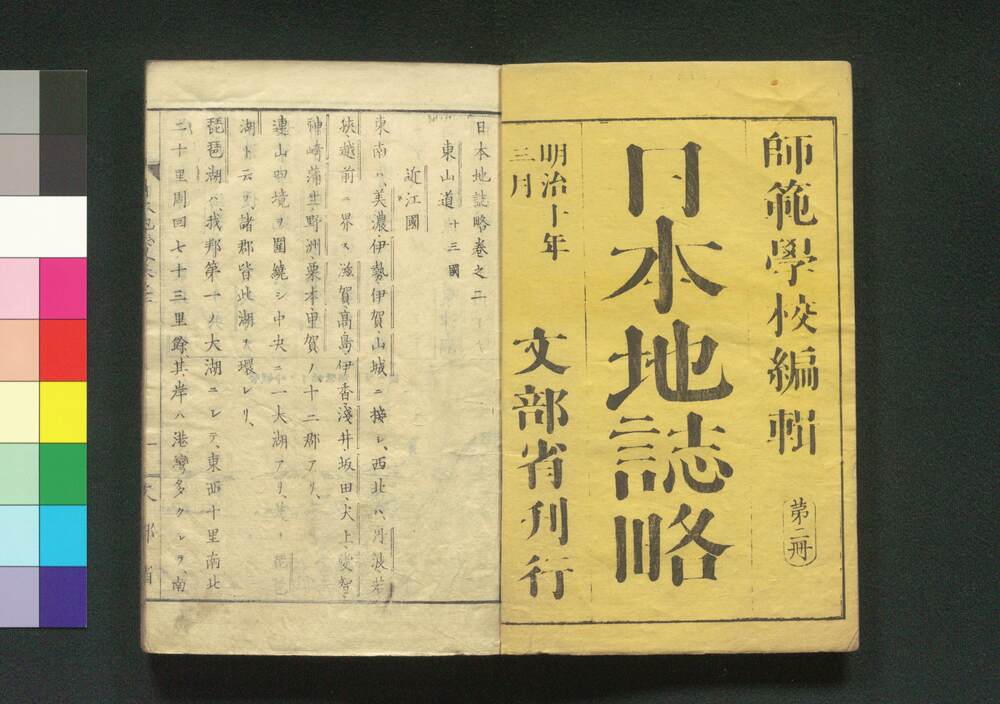 師範學校編輯
第二冊
日本地誌略
明治十年
三月
文部省刊行
日本地誌略卷之二
東山道 十三國
近江國
東南ハ、美濃、伊勢、伊賀、山城ニ接シ、西北ハ、丹波、若
狹、越前ニ界ス、滋賀、高島、伊香、淺井、坂田、犬上、愛智、
神崎、蒲生、野洲、栗本、甲賀ノ十二郡アリ、
連山四境ヲ圍繞シ中央ニ一大湖アリ、
湖ト云フ、諸郡皆此湖ヲ環レリ、
琵琶湖ハ、我邦第一ノ大湖ニシテ、東西十里南北
二十里周回七十三里餘、其岸ハ港灣多クシテ、南